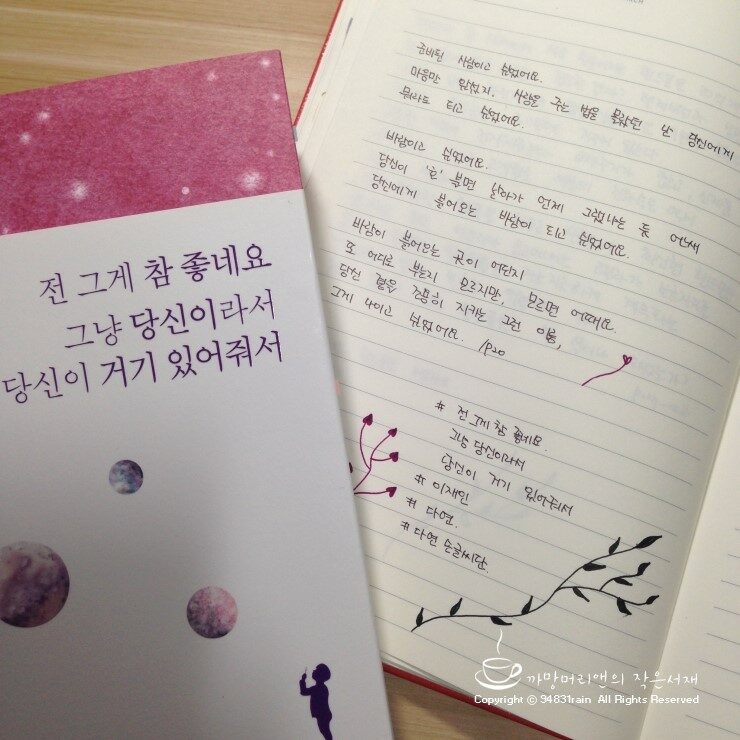 전 그게 참 좋네요
그냥 당신이라서
당신이 거기 있어줘서
준비된 사람이고 싶었어요.
마음만 앞섰지, 사랑을 주는 법을 몰랐던 난 당신에게
뭐라도 되고 싶었어요.
바람이고 싶었어요.
당신이 '호' 불면 날아가 언제 그랬냐는 듯 어느새
당신에게 불어오는 바람이 되고 싶었어요.
바람이 불어오는 곳이 어딘지
또 어디로 부는지 모르지만, 모르면 어때요.
당신 곁을 검응히 지키는 그런 이름,
그게 나이고 싶었어요. /p20
# 전 그게 참 좋네요.
그냥 당신이라서
당신이 거기 있어줘서
# 이재인
# 다연.
# 다연 손글씨단.
까망머리앤의 작은서재
Copyright ⓒ 94831rain All Rights Reserved